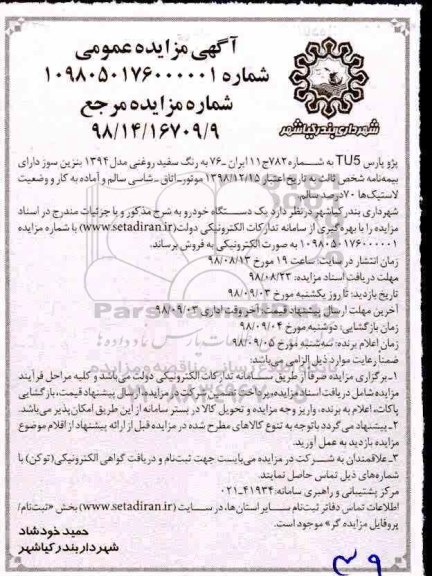 آگهی مزایده عمومی
شماره ۱۰۹۸۰۵۰۱۷۶۰۰۰۰۰۱
شماره مزایده مرجع
۹۸/۱۴/۱۶۷۰۹/۹
شهرداری بندر کیاشهر
پژو پارس TU5 به شماره ۷۸۲ج۱۱ ایران ـ۷۶ به رنگ سفید روغنی مدل ۱۳۹۴ بنزین سوز دارای
بیمه‌نامه شخص ثالث به تاریخ اعتبار ۱۳۹۸/۱۲/۱۵ موتورـ اتاق ـ شاسی سالم و آماده به کار و وضعیت
لاستیک‌ها ۷۰درصد سالم.
شهرداری بندر کیاشهر در نظر دارد یک دستگاه خودرو به شرح مذکور و با جزئیات مندرج در اسناد
مزایده را با بهره‌گیری از سامانه تدارکات الکترونیکی دولت (www.setadiran.ir) با شماره مزایده
۱۰۹۸۰۵۰۱۷۶۰۰۰۰۰۱ به صورت الکترونیکی به فروش برساند.
زمان انتشار در سایت: ساعت ۱۹ مورخ ۹۸/۰۸/۱۳
مهلت دریافت اسناد مزایده: ۹۸/۰۸/۲۳
تاریخ بازدید: تا روز یکشنبه مورخ ۹۸/۰۹/۰۳
آخرین مهلت ارسال پیشنهاد قیمت: آخر وقت اداری ۹۸/۰۹/۰۳
زمان بازگشایی: دوشنبه مورخ ۹۸/۰۹/۰۴
زمان اعلام برنده: سه‌شنبه مورخ ۹۸/۰۹/۰۵
ضمنا رعایت موارد ذیل الزامی می‌باشد:
۱ـ برگزاری مزایده صرفاً از طریق سامانه تدارکات الکترونیکی دولت می‌باشد و کلیه مراحل فرآیند
مزایده شامل دریافت اسناد مزایده، پرداخت تضمین شرکت در مزایده، ارسال پیشنهاد قیمت، بازگشایی
پاکات، اعلام به برنده، واریز وجه مزایده و تحویل کالا در بستر سامانه از این طریق امکان پذیر می‌باشد.
۲ـ پیشنهاد می‌گردد باتوجه به تنوع کالاهای مطرح شده در مزایده قبل از ارائه پیشنهاد از اقلام موضوع
مزایده بازدید به عمل آورید.
۳ـ علاقمندان به شرکت در مزایده می‌بایست جهت ثبت‌نام و دریافت گواهی الکترونیکی (توکن) با
شماره‌های ذیل تماس حاصل نمایند.
مرکز پشتیبانی و راهبری سامانه: ۴۱۹۳۴-۰۲۱
اطلاعات تماس دفاتر ثبت‌نام سایر استان‌ها، در سایت (www.setadiran.ir) بخش «ثبت‌نام/
پروفایل مزایده گر» موجود است.
حمید خودشاد
شهردار بندر کیاشهر
۳۹